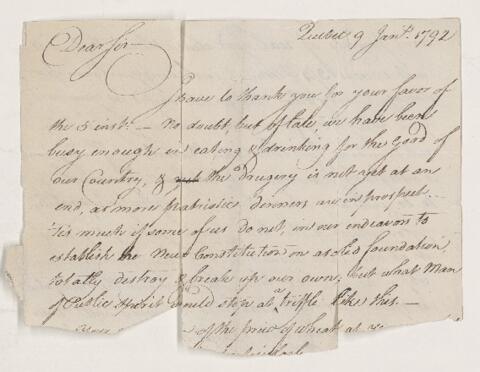 Quebec 9 Jany. 1792
Dear Sir
I have to thank you for your favor of
the 5 inst: — No doubt, but of late, we have been
busy enough in eating & drinking for the Good of
our Country, & yet the drugery is not yet at an
end, as more patriotic dinners are in prospect.
'tis much if some of us do not, in our endeavors to
establish the New Constitution on a solid foundation
totally destroy & break up our own, but what Man
of Public Spirit would stop at a triffle like this. —
of the price of wheat at